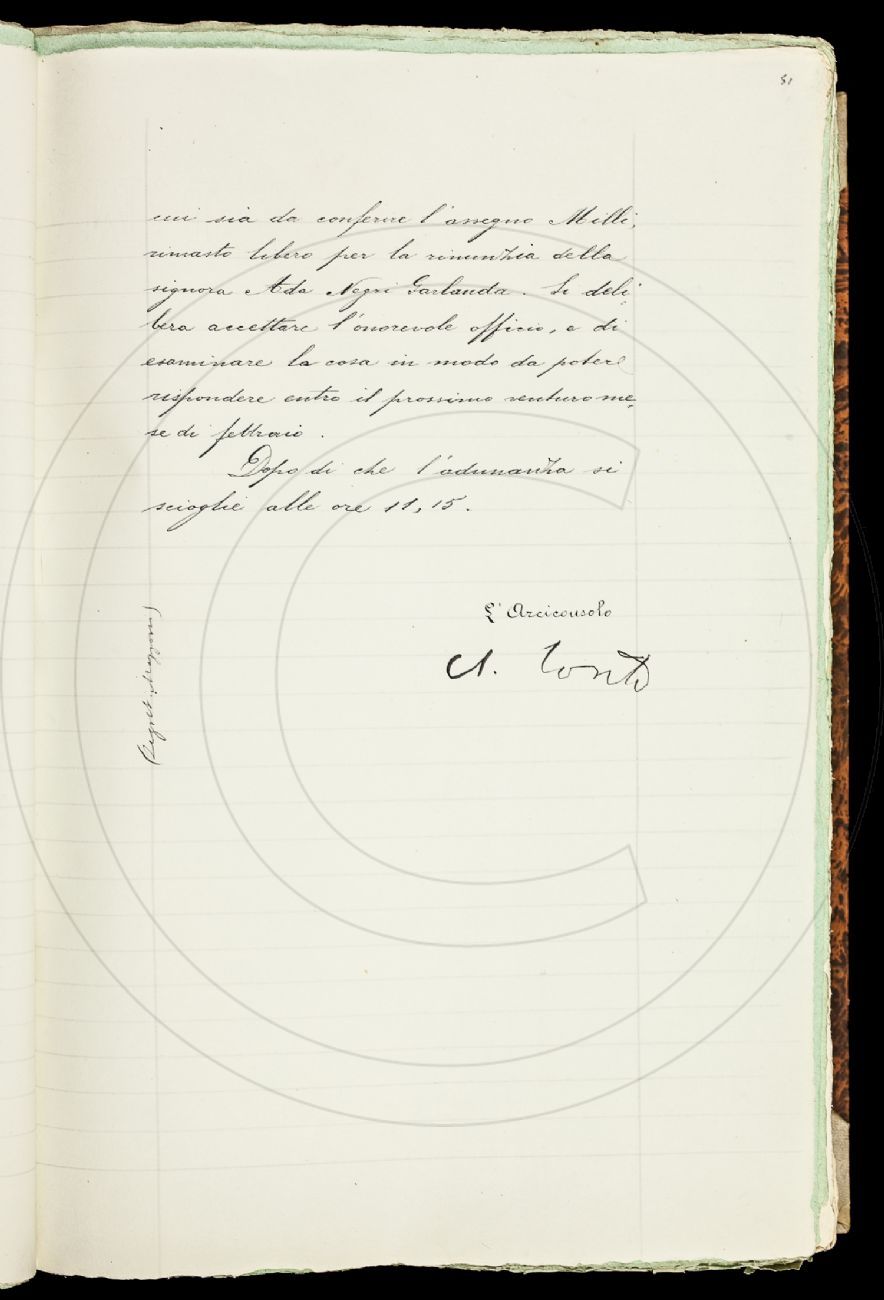 51
cui sia da conferire l'assegno Milli,
rimasto libero per la rinunzia della
signora Ada Negri Garlanda. Si deli
bera accettare l'onorevole officio, e di
esaminare la cosa in modo da poter
rispondere entro il prossimo venturo me,
se di febbraio.
Dopo di che l'adunanza si
scioglie alle ore 11,15.
L'Arciconsolo
A. Conti